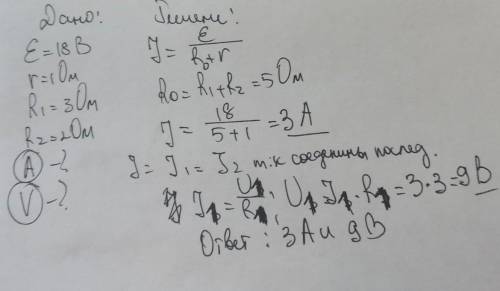 Дано:
ε = 18 В
r = 1 Ом
R₁ = 3 Ом
R₂ = 2 Ом
A - ?
V - ?
Решение:
J = ε / (R₀ + r)
R₀ = R₁ + R₂ = 5 Ом
J = 18 / (5 + 1) = 3 А
J = J₁ = J₂ т.к соеденины послед.
J₁ = U₁ / R₁, U₁ = J₁ · R₁ = 3 · 3 = 9 В
Ответ: 3 А и 9 В